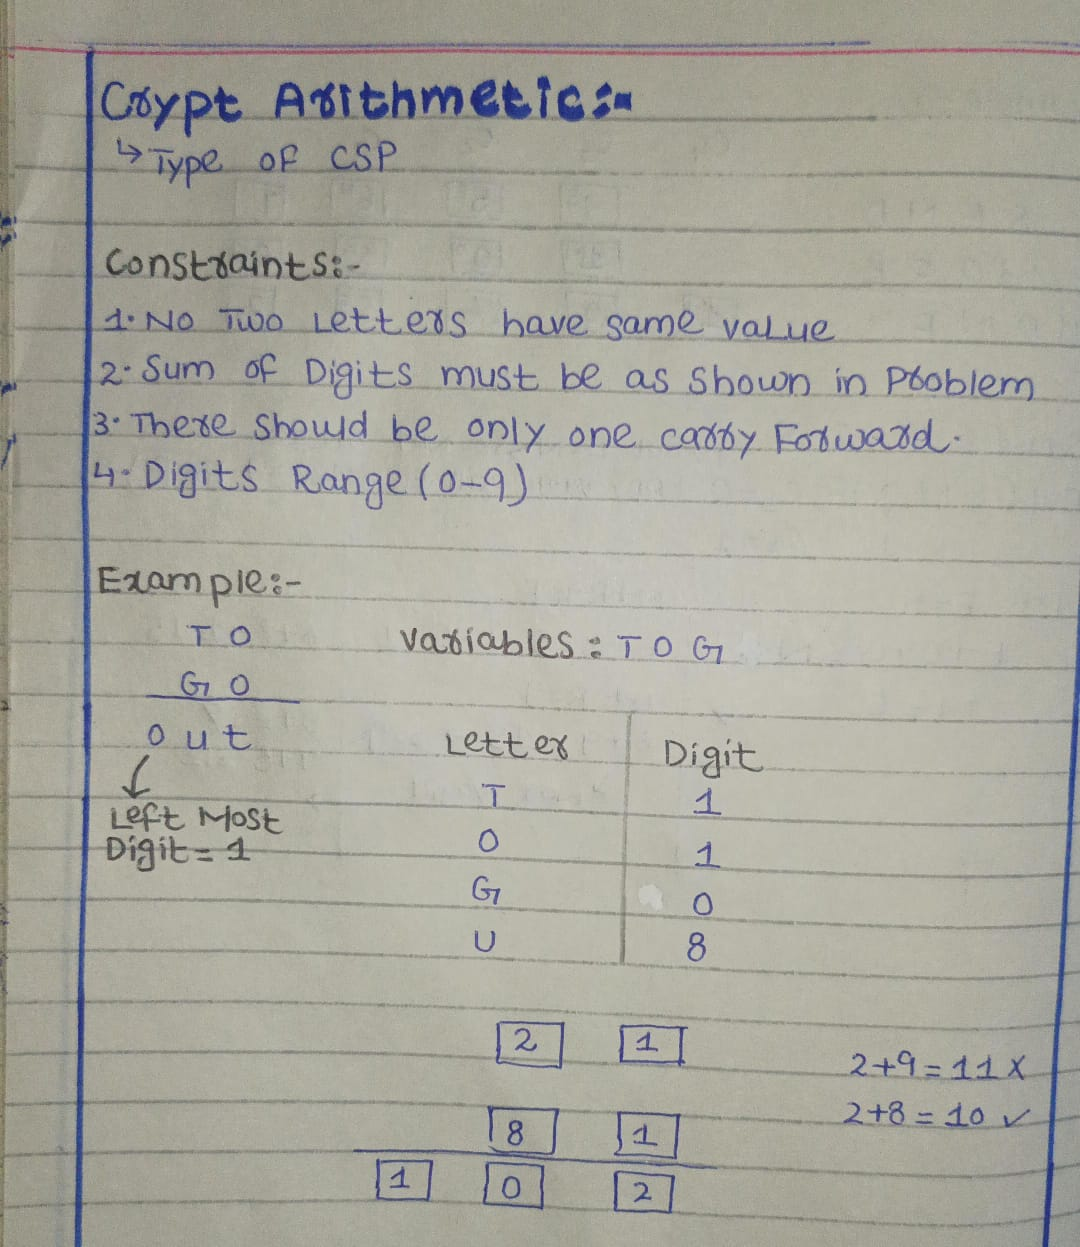 Crypt Arithmetic:-
↳ Type of CSP
Constraints:-
1. No Two Letters have same value
2. Sum of Digits must be as shown in Problem
3. There should be only one carry Forward.
4. Digits Range (0-9)
Example:-
T O
Variables : T O G
G O
O u t
Letter Digit
Left Most
Digit = 1
T 1
O 1
G 0
U 8
2 1
2+9 = 11 X
2+8 = 10 ✓
8 1
1 0 2